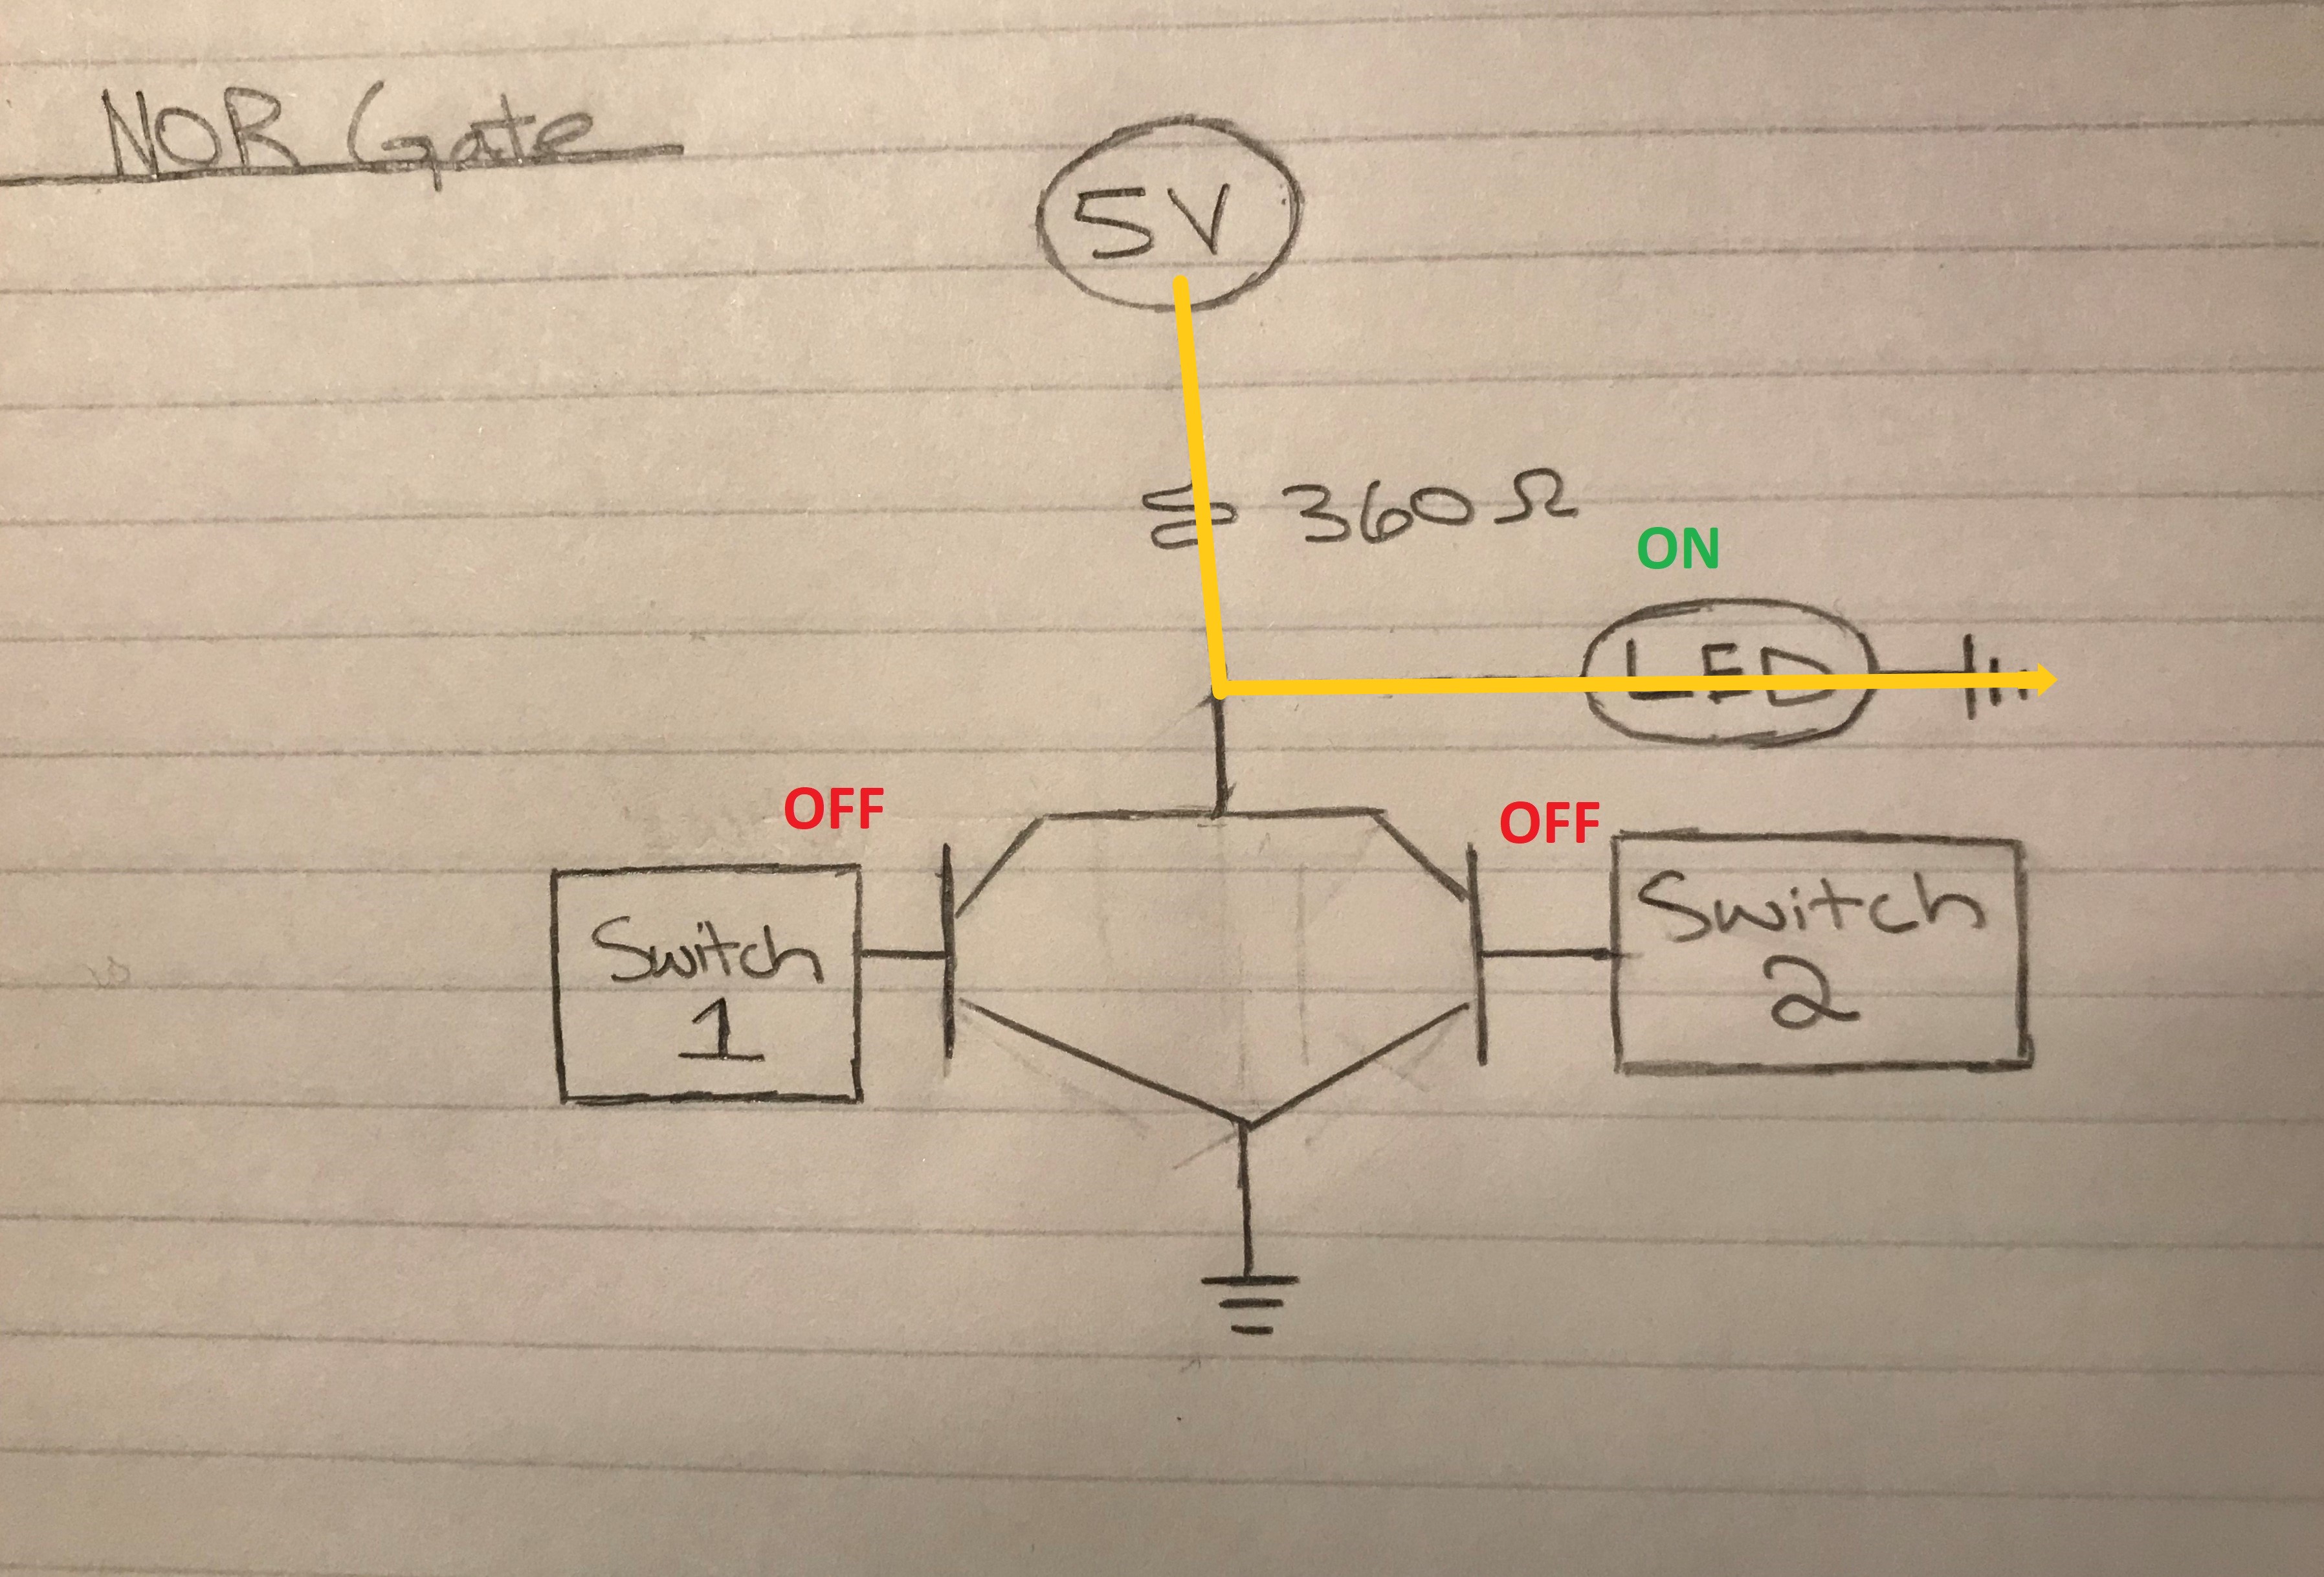 NOR Gate
5V
360 Ω
ON
LED
OFF
OFF
Switch
1
Switch
2